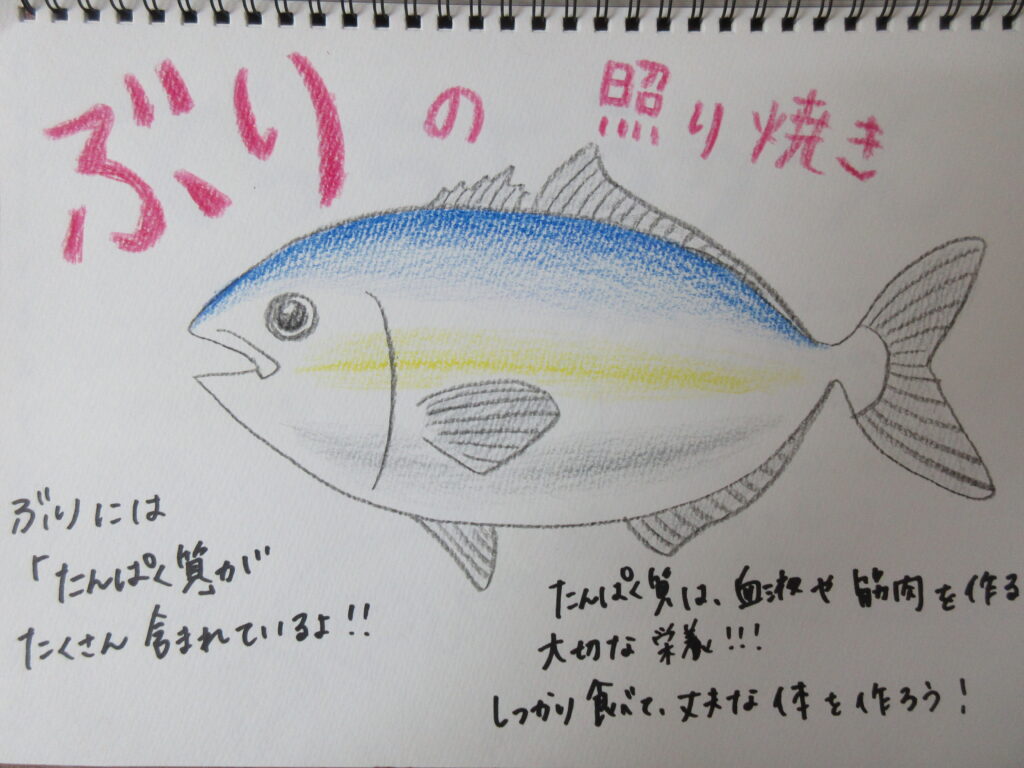 ぶりの照り焼き
ぶりには
「たんぱく質」が
たくさん含まれているよ!!
たんぱく質は、血液や筋肉を作る
大切な栄養!!!
しっかり食べて、丈夫な体を作ろう!